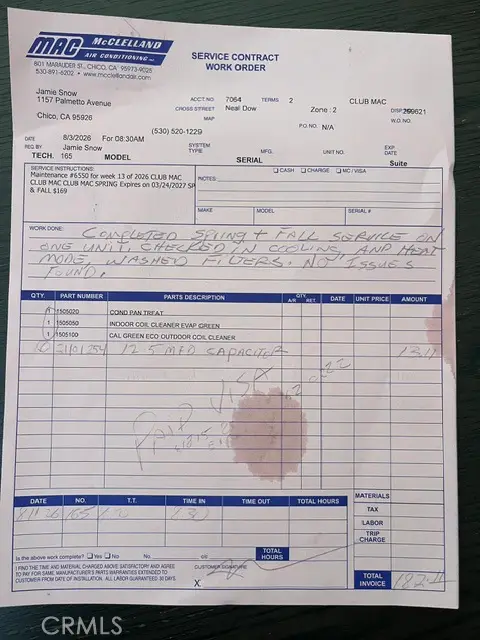 MAC McCLELLAND
AIR CONDITIONING INC.
601 MARAUDER ST., CHICO, CA 95973-9026
530-891-6202 • www.mcclellandair.com
SERVICE CONTRACT
WORK ORDER
Jamie Snow
1157 Palmetto Avenue
Chico, CA 95926
ACCT.NO 7064 TERMS 2 CLUB MAC
CROSS STREET Neal Dow Zone : 2
MAP
W.O.NO.
P.O. NO. N/A
(530) 520-1229
DATE 8/3/2026 For 08:30AM
REQ BY Jamie Snow SYSTEM TYPE MFG. UNIT NO. EXP DATE
TECH. 165 MODEL SERIAL Suite
SERVICE INSTRUCTIONS:
Maintenance #6550 for week 13 of 2026 CLUB MAC
CLUB MAC CLUB MAC SPRING Expires on 03/24/2027 SP
& FALL $169
CASH CHARGE MC / VISA
NOTES
MAKE MODEL SERIAL #
WORK DONE: COMPLETED SPRING + FALL SERVICE ON
ONE UNIT, CHECKED IN COOLING, AND HEAT
MODE, WASHED FILTERS. NO ISSUES
FOUND.
QTY. PART NUMBER PARTS DESCRIPTION QTY. A/R RET. DATE UNIT PRICE AMOUNT
1 1505020 COND PAN TREAT
1 1505050 INDOOR COIL CLEANER EVAP GREEN
1 1505100 CAL GREEN ECO OUTDOOR COIL CLEANER
12.5 MFD CAPACITOR
PAID VISA
MATERIALS
DATE NO. T.T. TIME IN TIME OUT TOTAL HOURS
TAX
165
LABOR
TRIP CHARGE
Is the above work complete? Yes No No. o/c TOTAL HOURS
I FIND THE TIME AND MATERIAL CHARGED ABOVE SATISFACTORY AND AGREE
TO PAY FOR SAME. MANUFACTURER'S PARTS WARRANTIES EXTENDED TO
CUSTOMER FROM DATE OF INSTALLATION. ALL LABOR GUARANTEED 30 DAYS.
CUSTOMER SIGNATURE
X
TOTAL INVOICE 182.11
CRMLS